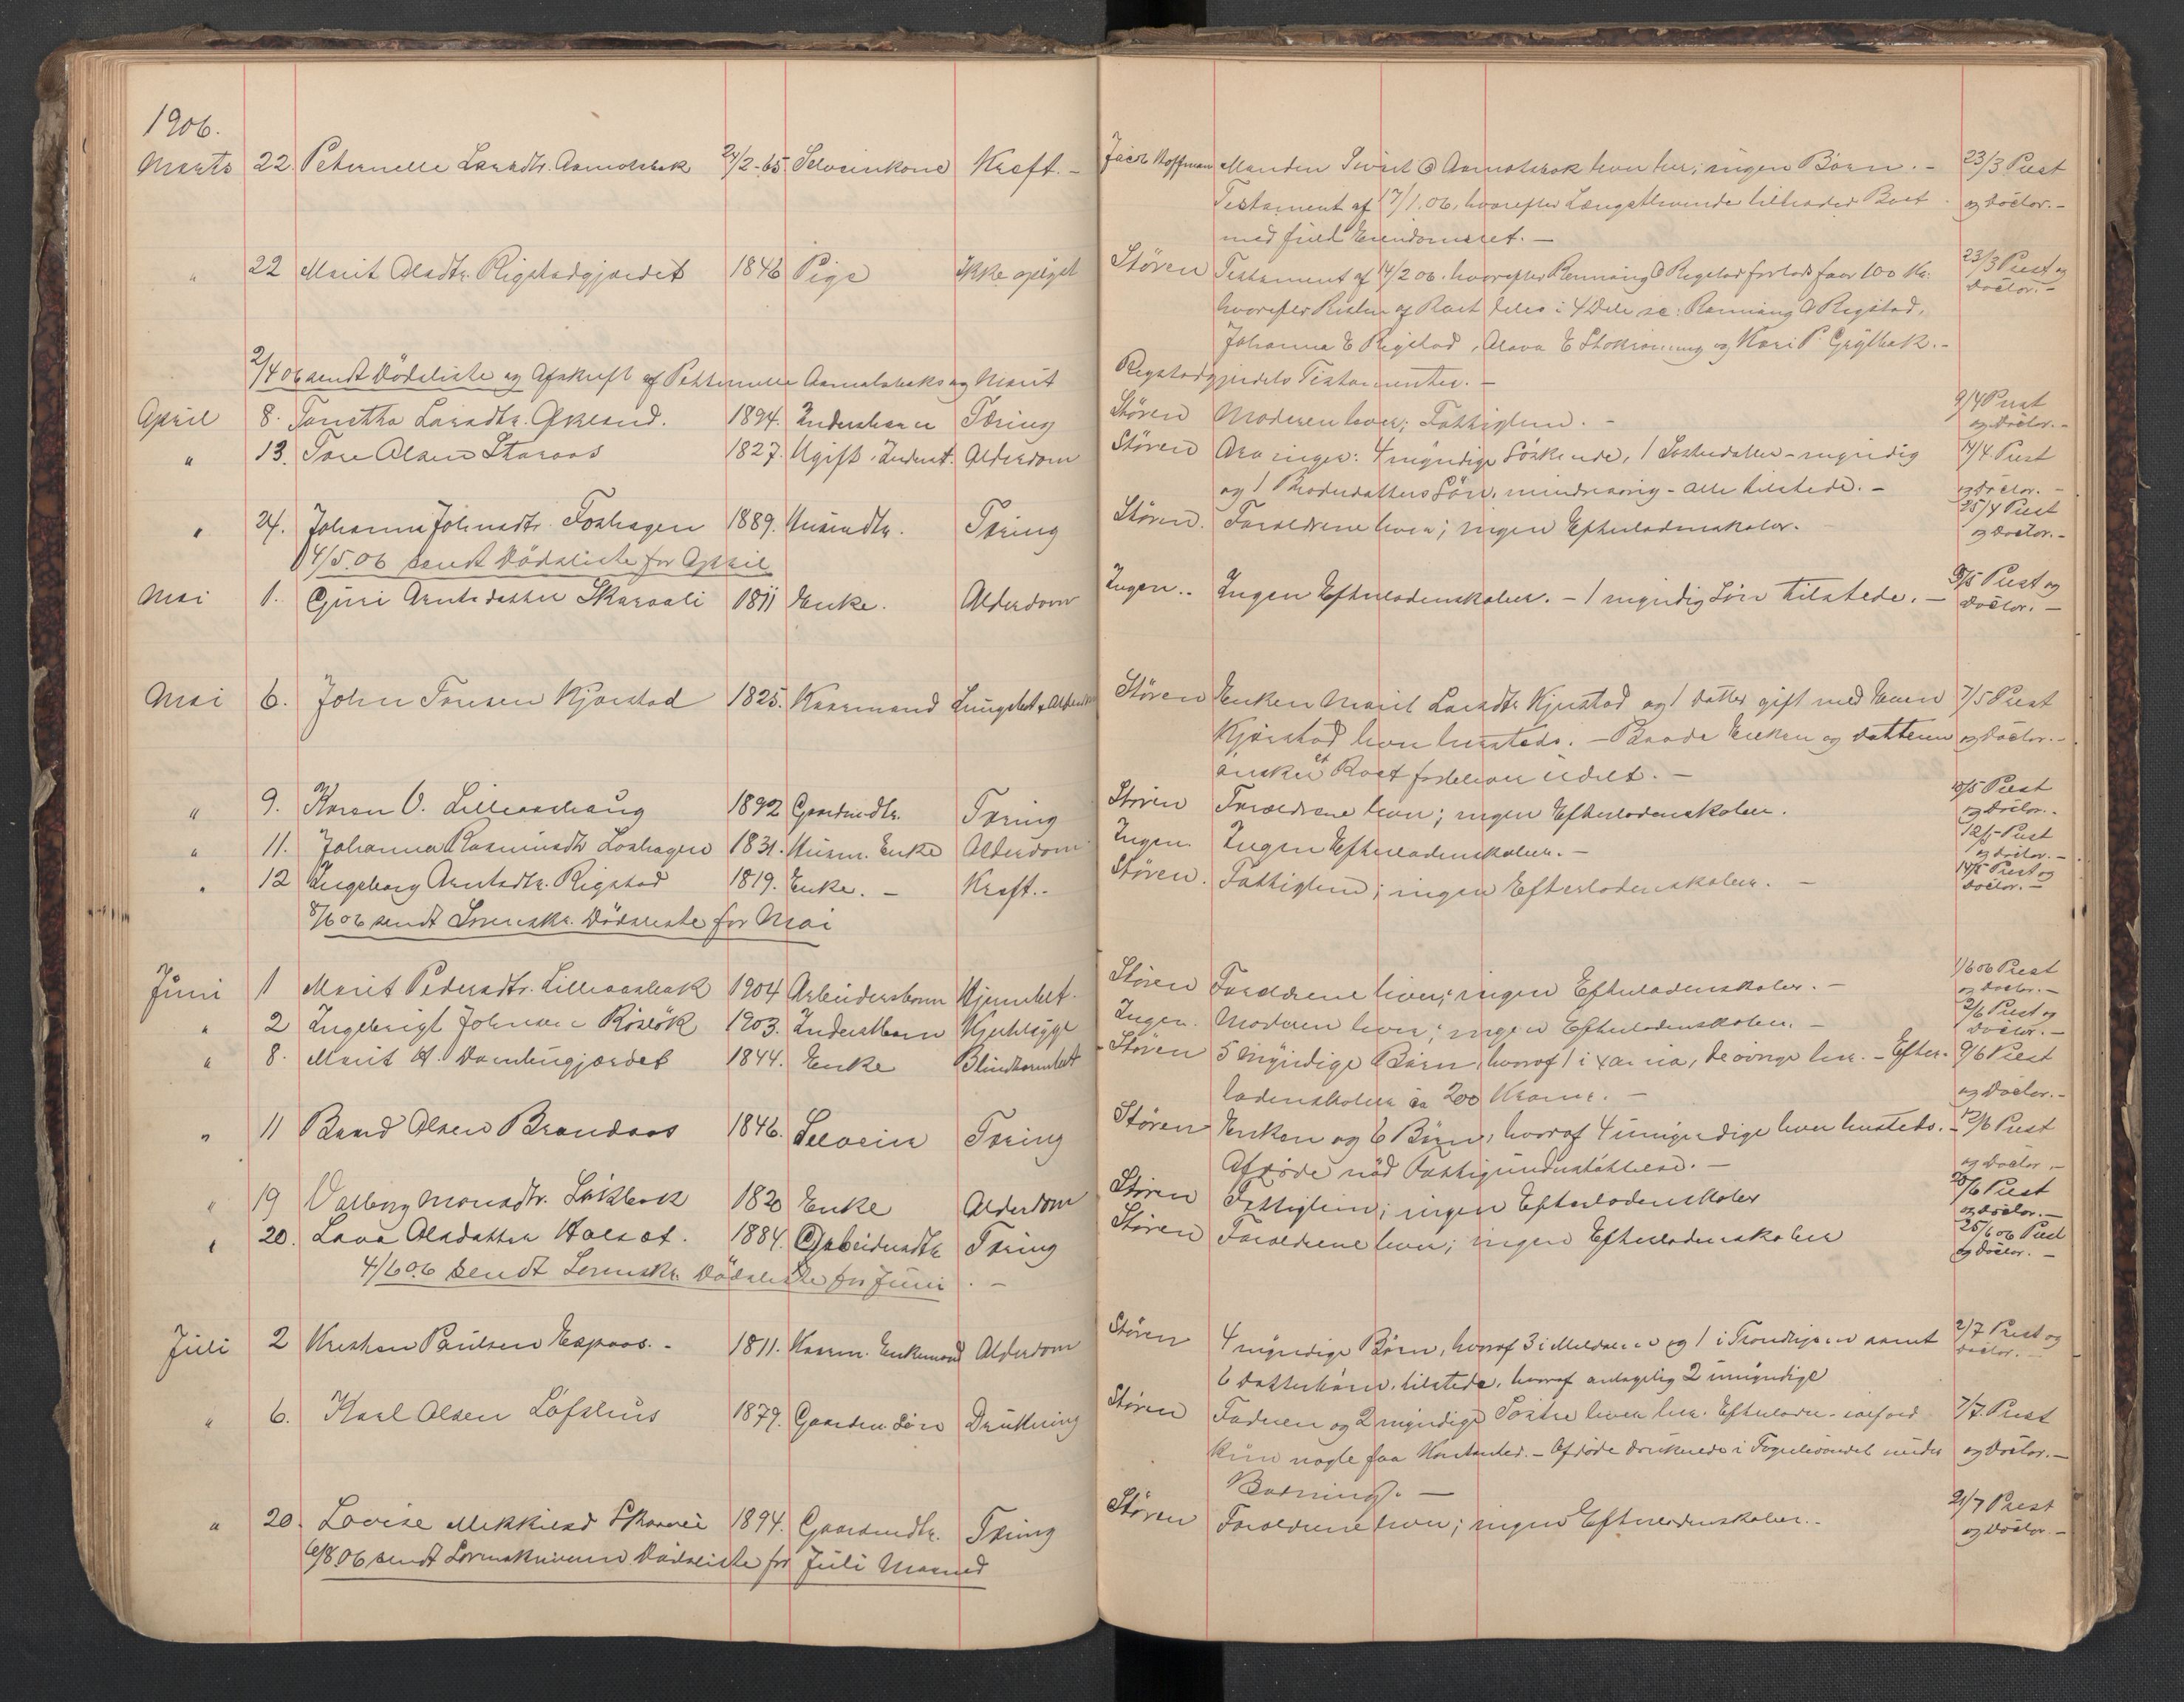 1906.
Marts 22. Peternelle Larsdtr. Aamotsbak 24/2-65 Selveierkone Kræft. - Jacob Hoffman Manden Sivert O Aamotsbak lever her; ingen Børn. - 23/3 Præst
Testament af 17/1.06, hvorefter Længstlevende tiltræder Boet og Doctor. -
med fuld Eiendomsret. -
" 22 Marit Olsdtr. Rigstadgjærdet 1846 Pige Ikke oplyst Støren Testament af 14/2 06. hvorefter Rønnaug O Rigstad forlods faar 100 Kr. 23/3 Præst og
hvorefter Resten af Boet deles i 4 Dele se: Rønnaug O Rigstad, Doctor. -
Johanna E Rigstad, Olava E og Kari P.
2/4 06 sendt Dødsliste og Afskrift af Petternelle Aamotsbaks og Marit Rigstadgjærdets Testamenter. -
April 8. Larsdtr. Økland. 1894. Inderstbarn Tæring Støren Moderen lever; Fattiglem. - 9/4 Præst
og Doctor. -
" 13. Tore Olsen Storaas 1827. Ugift Inderst. Alderdom Støren Arvinger: 4 myndige Søskende, 1 Søsterdatter - myndig 14/4. Præst
og 1 Broderdatters Søn, mindreaarig - alle tilstede. - og Doctor. -
" 24. Johanna Johnsdtr. Foshagen 1889. Husmdtr. Tæring Støren. Forældrene lever; ingen Efterladenskaber. 25/4 Præst
og Doctor. -
4/5.06 sendt Dødsliste for April
Mai 1. Guri Arntsdatter Skaraali 1811 Enke. Alderdom Ingen.. Ingen Efterladenskaber. - 1 myndig Søn tilstede. - 3/5 Præst og
Doctor. -
Mai 6. John Tøresen Kjørstad 1825. Kaarmand Lungebet & Alderdom Støren Enken Marit Larsdtr Kjørstad og 1 Datter gift med Even 7/5 Præst
Kjørstad lever hersteds. - Baade Enken og Datteren og Doctor. -
ønsker et Boet udlæt. -
" 9. Karen O. Lilleaashaug 1892 Gaardmdtr. Tæring Støren Forældrene lever; ingen Efterladenskaber. 10/5 Præst
og Doctor. -
" 11. Johanna Rasmusdtr Loshagen 1831. Husm. Enke Alderdom Ingen. Ingen Efterladenskaber. - 12/5 Præst
og Doctor. -
" 12 Ingeborg Arntsdtr. Rigstad 1819. Enke. - Kræft.. Støren. Fattiglem; ingen Efterladenskaber. - 14/5 Præst og
Doctor. -
8/6 06 sendt Sorenskr. Dødsliste for Mai
Juni 1 Marit Pedersdtr. Lilleaasbak 1904 Arbeidersbarn Hjernebet. Støren Forældrene lever; ingen Efterladenskaber. - 1/6 06 Præst
og Doctor. -
" 2 Ingebrigt Johnsen Røslök 1903. Inderstbarn Ingen. Moderen lever; ingen Efterladenskaber. - 2/6 Præst og
Doctor. -
" 8. Marit A. 1844. Enke Blindtarmbet Støren 5 myndige Børn, hvoraf 1 i de øvrige her. - Efter- 9/6 Præst
ladenskaber ca 200 Kroner. - og Doctor. -
" 11 Baard Olsen Brandaas 1846. Selveier Tæring Støren Enken og 6 Børn, hvoraf 4 umyndige lever hersteds. - 12/6 Præst
Afdøde nød Fattigunderstøttelse. - og Doctor. -
" 19 Valborg Monsdtr. Løkbak 1820 Enke Alderdom Støren Fattiglem; ingen Efterladenskaber 20/6 Præst
og Doctor. -
" 20. Lava Olsdatter Halset. 1884. Arbeidsdtr Tæring Støren Forældrene lever; ingen Efterladenskaber 25/6 06 Præst
og Doctor. -
4/6 06 sendt Sorenskr. Dødsliste for Juni. -
Juli 2 Kristen Paulsen Espaas. - 1811. Kaarm. Enkemand Alderdom Støren 4 myndige Børn, hvoraf 3 i Meldalen og 1 i Trondhjem samt 2/7 Præst og
6 Datterbørn, tilstede, hvoraf antagelig 2 umyndige Doctor. -
" 6. Karl Olsen Løfshus 1879. Gaardm. Søn Drukning Støren Faderen og 2 myndige Søstre lever her. 7/7. Præst
kun nogle faa Kontanter. - Afdøde druknede i under og Doctor. -
Badning. -
" 20. Lovise Mikkelsd 1894. Gaardmdtr. Tæring Støren Forældrene lever; ingen Efterladenskaber. - 21/7 Præst
og Doctor. -
6/8 06 sendt Sorenskriveren Dødsliste for Juli Maaned